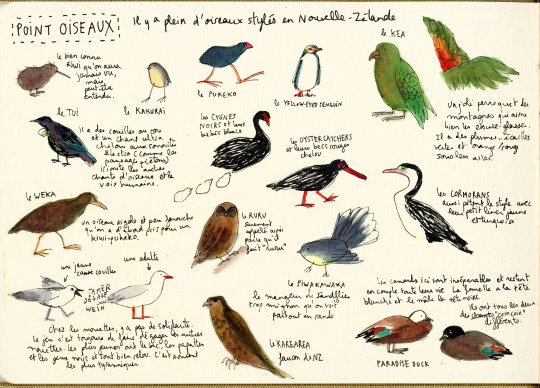 POINT OISEAUX
Il y a plein d'oiseaux stylés en Nouvelle-Zélande
le bien connu
kiwi qu'on aura
jamais vu,
mais
peut être
entendu.
le KAKURAI
le PUKEKO
le YELLOW-EYED PENGUIN
le KEA
un joli perroquet des
montagnes qui aime
bien les essuie-glaces.
Il a des plumes écailles
vertes et orange/rouge
sous les ailes
le TUI
Il a des couilles au cou
et un chant ultra
chelou aux sonorités
électro (comme les
il imite les autres
chants d'oiseaux et la
voix humaine.
les CYGNES
NOIRS et leurs
bébés blancs
les OYSTERCATCHERS
et leurs becs rouges
chelou
les CORMORANS
aussi pètent le style avec
leur petit liner jaune
et turquoise
le WEKA
un oiseau rigolo et peu farouche
qu'on a d'abord pris pour un
kiwi-pukeko.
le RURU
surement
appelé ainsi
parce qu'il
fait "ruru"
le PIWAKAWAKA
le mangeur de sandflies
trop mignon qu'on voit
partout en rando
un jeune
casse couilles
une adulte
TAMER
DÉGAGE
WESH
Chez les mouettes, y a pas de solidarité.
le jeu c'est toujours de faire dégager les autres
mouettes. les plus jeunes ont le bec, les papattes
et les yeux noirs et sont bien relou. C'est souvent
les plus tyranniques
le KAREAREA
faucon de NZ
les canards ici sont inséparables et restent
en couple toute leur vie. La femelle a la tête
blanche et le mâle la tête noire.
Ils ont tous les deux
des "coin coin"
différents.
PARADISE DUCK